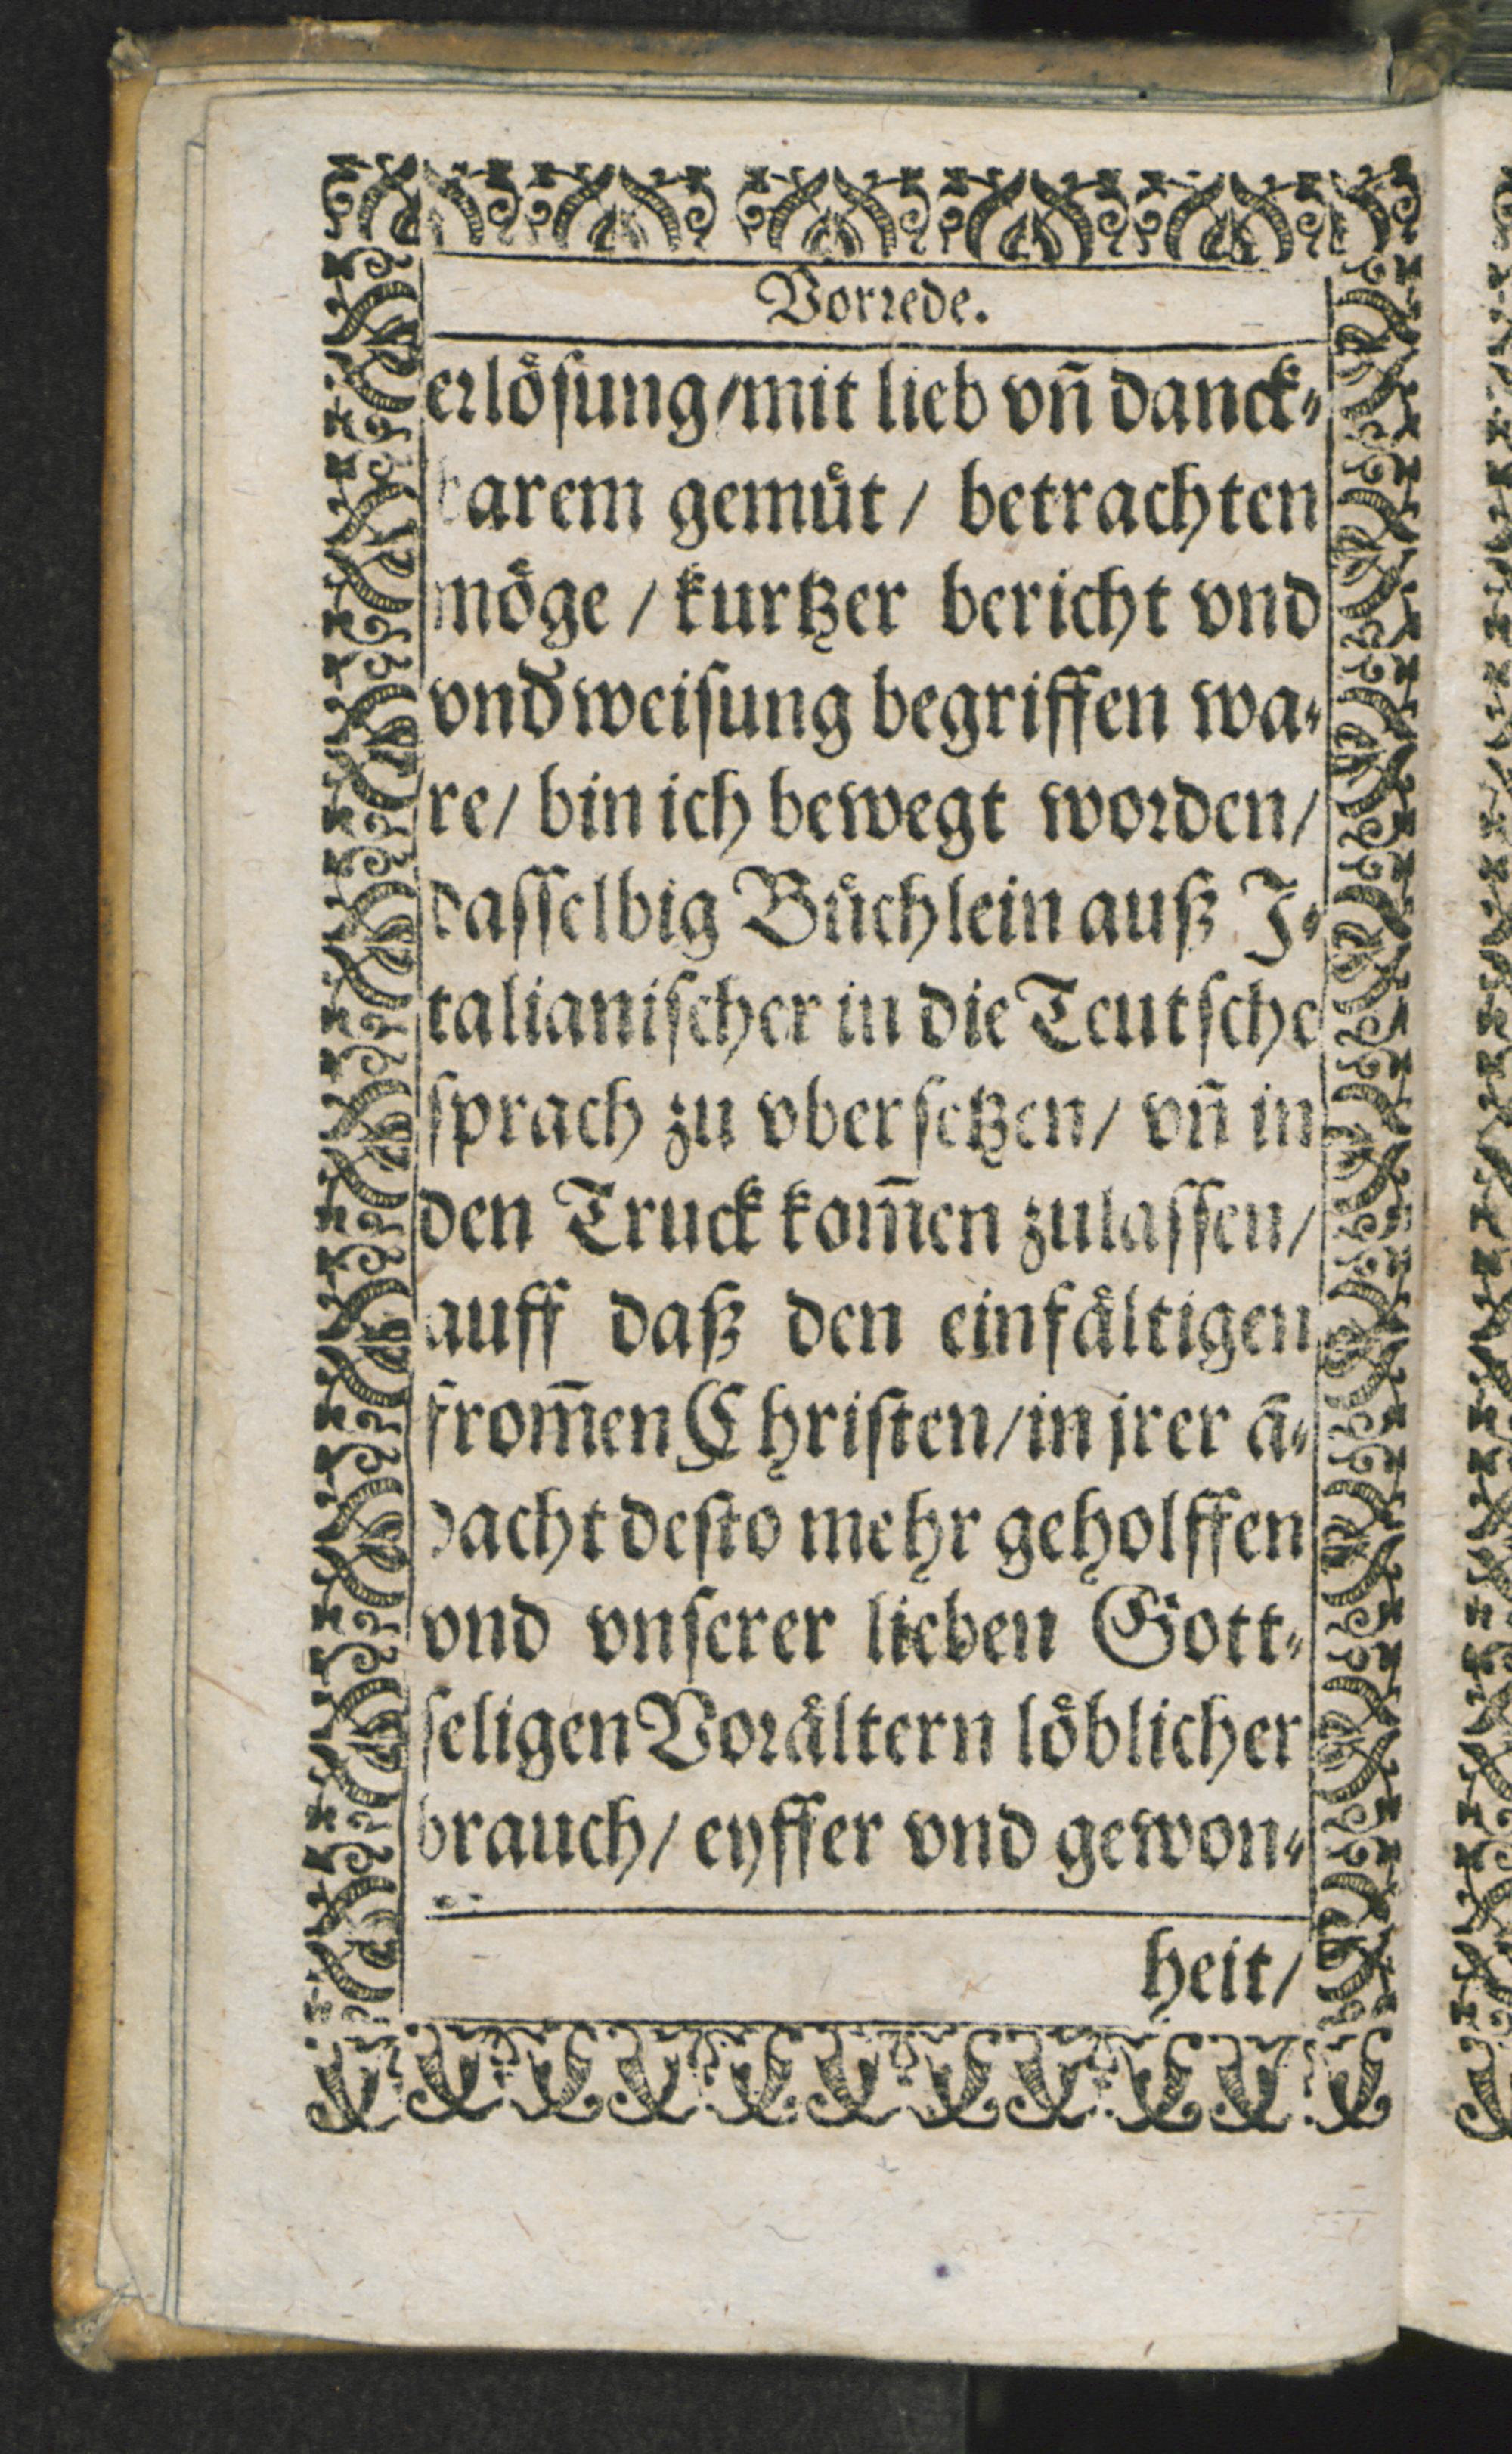 Vorrede.
erlöſung/mit lieb vñ danck⸗
barem gemuͤt/ betrachten
moͤge / kurtzer bericht vnd
vnd̃weiſung begriffen wa⸗
re/ bin ich bewegt worden/
daſſelbig Buͤchlein auß J⸗
talianiſcher in die Teutſche
ſprach zu vberſetzen/ vñ in
den Truck kom̃en zulaſſen/
auff daß den einfaͤltigen
from̃en Chriſten/in jrer ã⸗
dacht deſto mehr geholffen
vnd vnſerer lieben Gott⸗
ſeligen Voraͤltern loͤblicher
brauch/ eyffer vnd gewon⸗
heit/